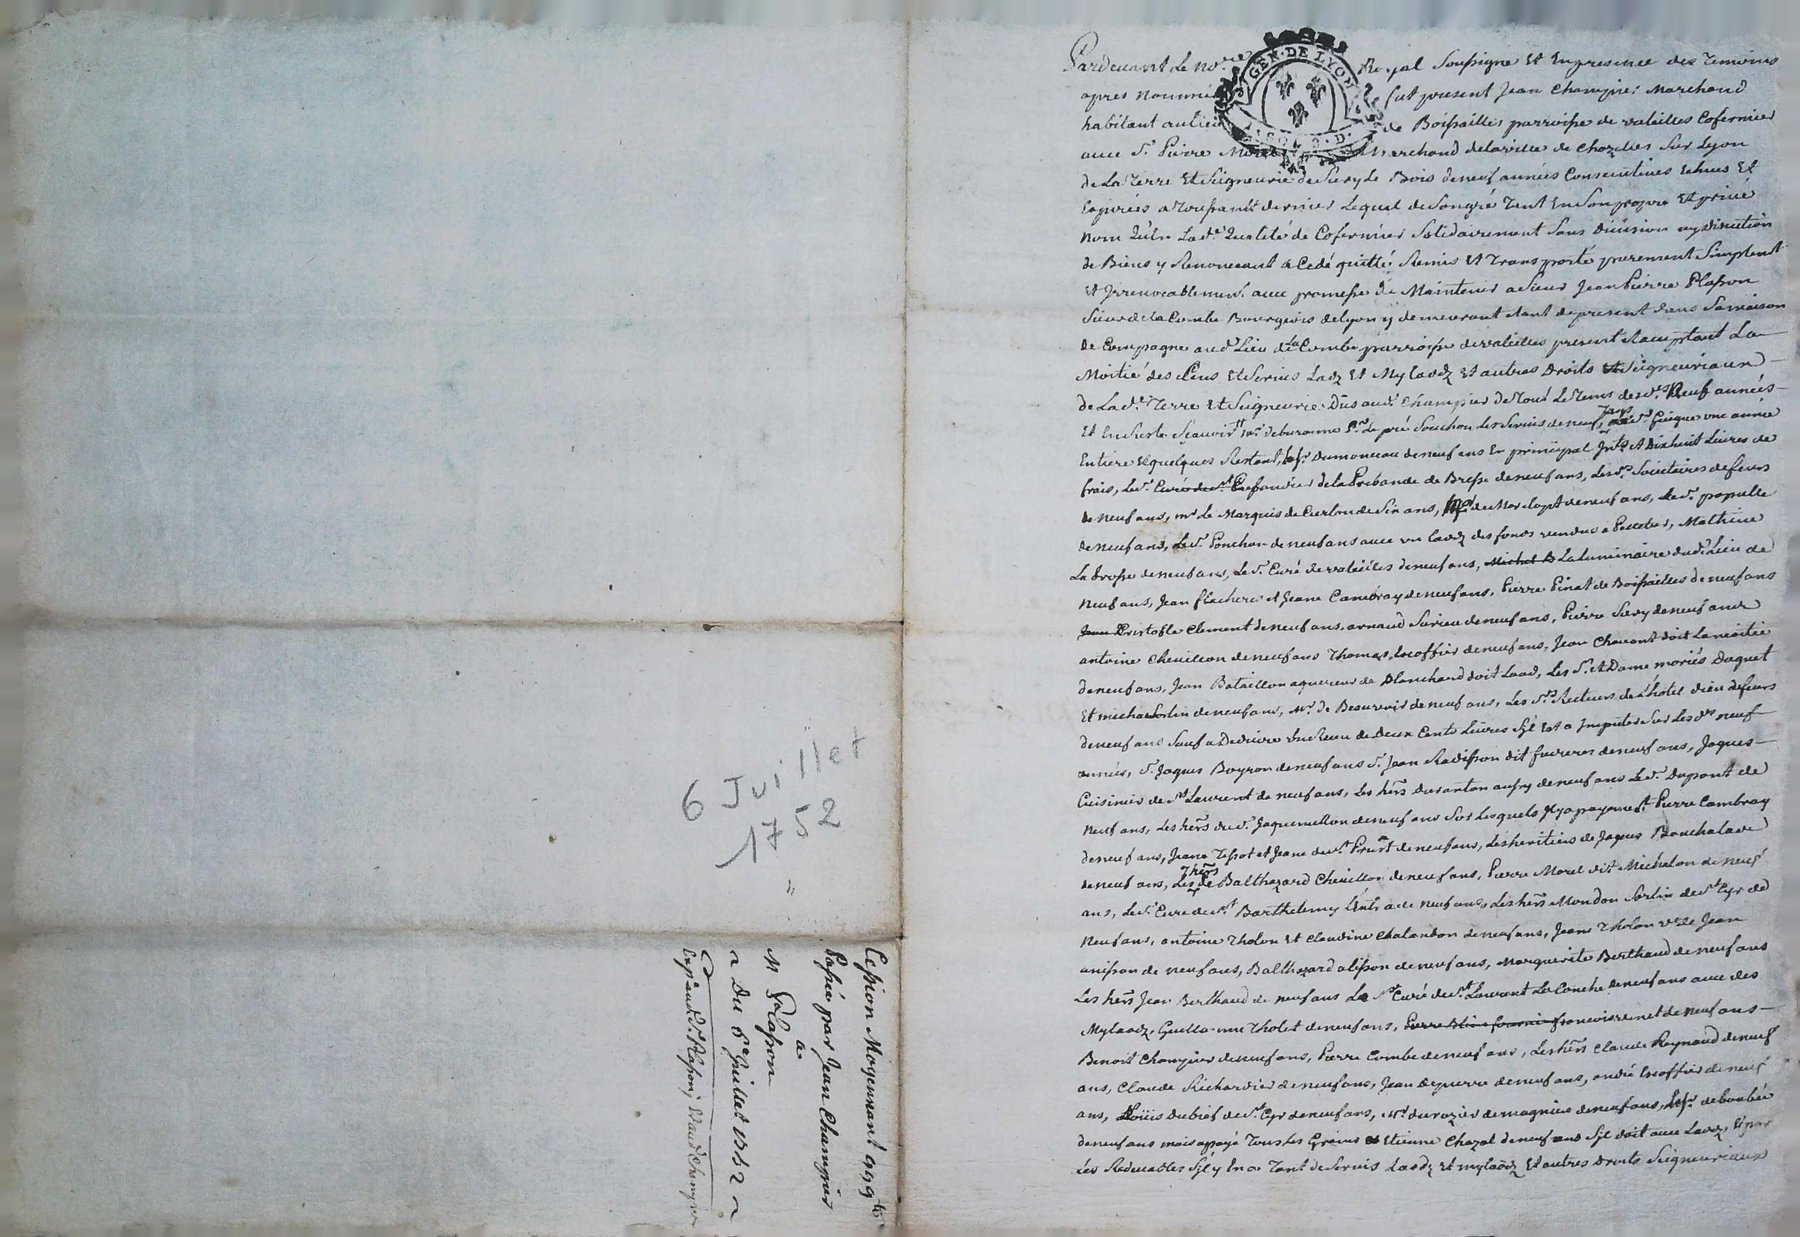 6 Juillet
1752
"
Cession Moyennant 999 lt
Passée par Jean Champier
a
M Plasson
Du 6e Juillet 1752
Exp.
GEN. DE LYON
Pardevant Le No.re Royal Soussigné Et En presence des Temoins
apres Nommés fut present Jean Champier Marchand
habitant au lieu de Boissailles parroisse de valeilles Cofermier
avec Sr. Pierre Marchand de la ville de Chazelles Sur Lyon
de La Terre Et Seigneurie de Sury Le Bois de neuf années Consecutives Echues Et
Expirees a Toussaint dernier Lequel de Son gré Tant En Son propre Et privé
Nom Qu'en Lad.e Qualité de Cofermier Solidairement Sans Division ny discution
de Biens y Renonceant a Cedé quitté Remis Et Transporté purement Simplemt
Et Irrevocablement avec promesse de Maintenir a Sieur Jean Pierre Plasson
Sieur de la Combe Bourgeois de Lyon y demeurant Etant de present dans Sa maison
de Campagne aud. Lieu de La Combe parroisse de valeilles present Et acceptant La
Moitié des Cens Et Servis Laodz Et Mylaodz Et autres Droits Seigneuriaux
de Lad.e Terre Et Seigneurie Dus aud. Champier de Tout Le Tems desd.s Neuf années
Et En Suite Scavoir Le pré Souchon Les Servis de neuf ans, Le Sr. Guigue une année
Entiere Et quelques Restant, Dumonceau de neuf ans En principal Intts Et Dixhuit Livres de
frais, Le Sr. de la Prebande de Bresse de neuf ans, Les Srs. Societaires de feurs
de Neuf ans, mr Le Marquis de de Six ans, de neuf ans, Le Sr. popule
de neuf ans, Le Sr. Ponchon de neuf ans avec un laodz des fonds vendus a Mathieu
La brosse de neuf ans, Le Sr. Curé de valeilles de neuf ans, La Luminaire dud. Lieu de
Neuf ans, Jean flachere et Jeane Cambray de neuf ans, Pierre Pinat de Boissailles de neuf ans
Cristofle Clement de neuf ans, arnaud Surieu de neuf ans, Pierre Sury de neuf ans
antoine Chevillon de neuf ans Thomas Escoffier de neuf ans, Jean Chavant doit La moitié
de neuf ans, Jean Bataillon aquereur de Blanchard doit Laod, Les Sr. et Dame mariés Daguet
Et michel Sorlin de neuf ans, Mr. de Beauvoir de neuf ans, Les Srs Recteurs de L'hotel Dieu de feurs
de neuf ans Sauf a Deduire un Receu de Deux Cents Livres S'il Est a Imputer Sur Les d.s neuf
années, Sr. Jaques Boyron de neuf ans Sr. Jean Ravisson dit de neuf ans, Jaques
Cuisinier de St Laurent de neuf ans, Les hers Duranton de neuf ans Le Sr. Dupont de
Neuf ans, Les hers du Sr. Jaquemellon de neuf ans Sur Lesquels Il y a payement Pierre Cambray
de neuf ans, Jeane Tissot et Jeane de neuf ans, Les heritiers de Jaques Bouchalad
de neuf ans, Les hers de Balthazard Chevillon de neuf ans, Pierre Morel dit Michalon de neuf
ans, Le Sr. Curé de St. Barthelemy L'Entra de Neuf ans, Les hers Mondon Sorlin de St Cyr de
Neuf ans, antoine Tholon Et Claudine Chalandon de neuf ans, Jeane Tholon ve de Jean
anisson de neuf ans, Balthazard alisson de neuf ans, Marguerite Berthaud de neuf ans
Les hers Jean Berthaud de neuf ans Le Sr Curé de St. Laurent La Conche de neuf ans avec des
Mylaodz, Guillaume Tholet de neuf ans, de neuf ans
Benoit Champier de neuf ans, Pierre Combe de neuf ans, Les hers Claude Reynaud de neuf
ans, Claude Richardier de neuf ans, Jean depierre de neuf ans, andré Escoffier de neuf
ans, Loüis Dubief de St. Cyr de neuf ans, Mr. durozier de magnieu de neuf ans, de boubée
de neuf ans mais a payé Tous Les Grains Etienne Chazal de neuf ans S'il doit avec Laodz, Et par
Les Redevables S'il y En a Tant de Servis Laodz Et mylaodz Et autres Droits Seigneuriaux